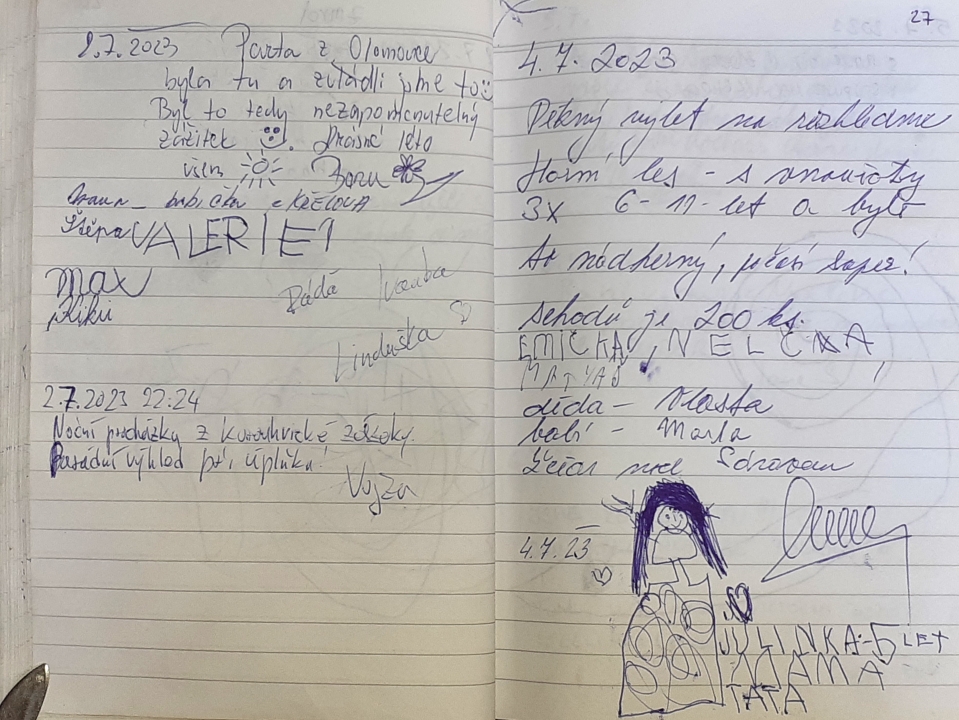 2.7.2023 Parta z Olomouce
byla tu a zvládli jsme to
Byl to tedy nezapomenutelný
zážitek Krásné léto
všem
babička
Štěpa VALERIE
Max
Riki
Dádá Ivanka
Linduška
2.7.2023 22:24
Noční procházka z Korouhvické zátoky.
Parádní výhled při úplňku!
Vojza
27
4.7.2023
Pěkný výlet na rozhlednu
Horní les - s vnoučky
3x 6-11-let a byli
nádherný, počasí super!
Schodů je 200 ks.
EMIČKA, NELČA,
MATYÁŠ
děda - Vlasta
babi - Marta
Žďár nad Sázavou
4.7.23
JULINKA-5 LET
MÁMA
TÁTA